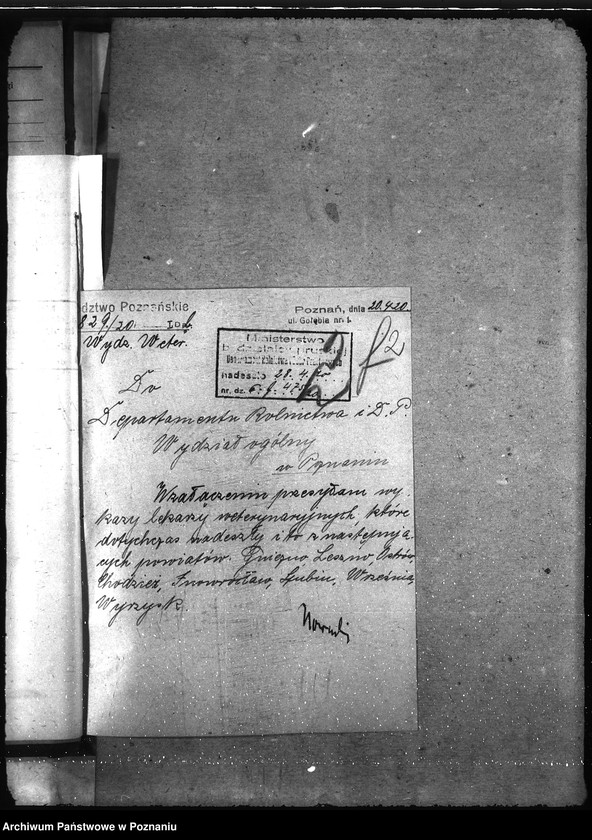 dztwo Poznańskie
829/20.
Wydz. Weter.
Poznań, dnia 20.4.20.
ul. Gołębia nr. 1.
Ministerstwo
b. dzielnicy pruskiej
nadeszło 28.4.20
nr. dz.
f 2
Do
Departamentu Rolnictwa i D. P.
Wydział ogólny
w Poznaniu
Wzałączeniu przesyłam wy-
kazy lekarzy weterynaryjnych, które
dotychczas nadeszły i to z następują-
cych powiatów. Gniezno, Leszno, Ostrów,
Chodzież, Inowrocław, Szubin, Września,
Wyrzysk.
Archiwum Państwowe w Poznaniu